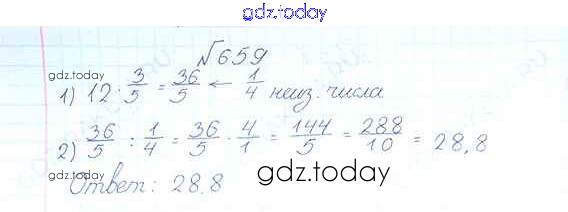 gdz.today
№659
gdz.today
1) 12 · 3/5 = 36/5 ← 1/4 неиз. числа
2) 36/5 : 1/4 = 36/5 · 4/1 = 144/5 = 288/10 = 28,8
Ответ: 28.8
gdz.today